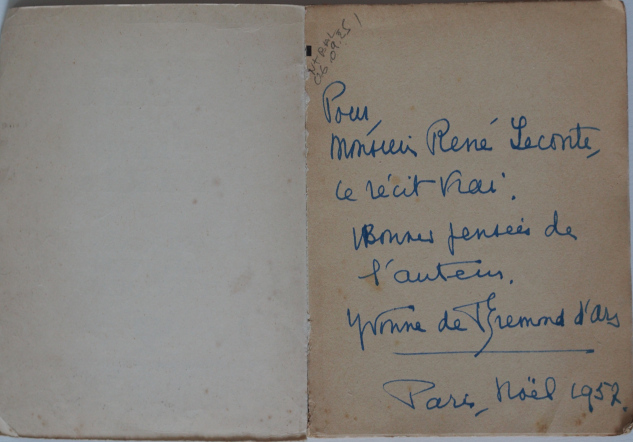 06.09.25
Pour,
Monsieur René Leconte,
ce récit vrai.
Bonnes pensées de
l'auteur.
Yvonne de Bremond d'Ars
Paris, Noël 1957.